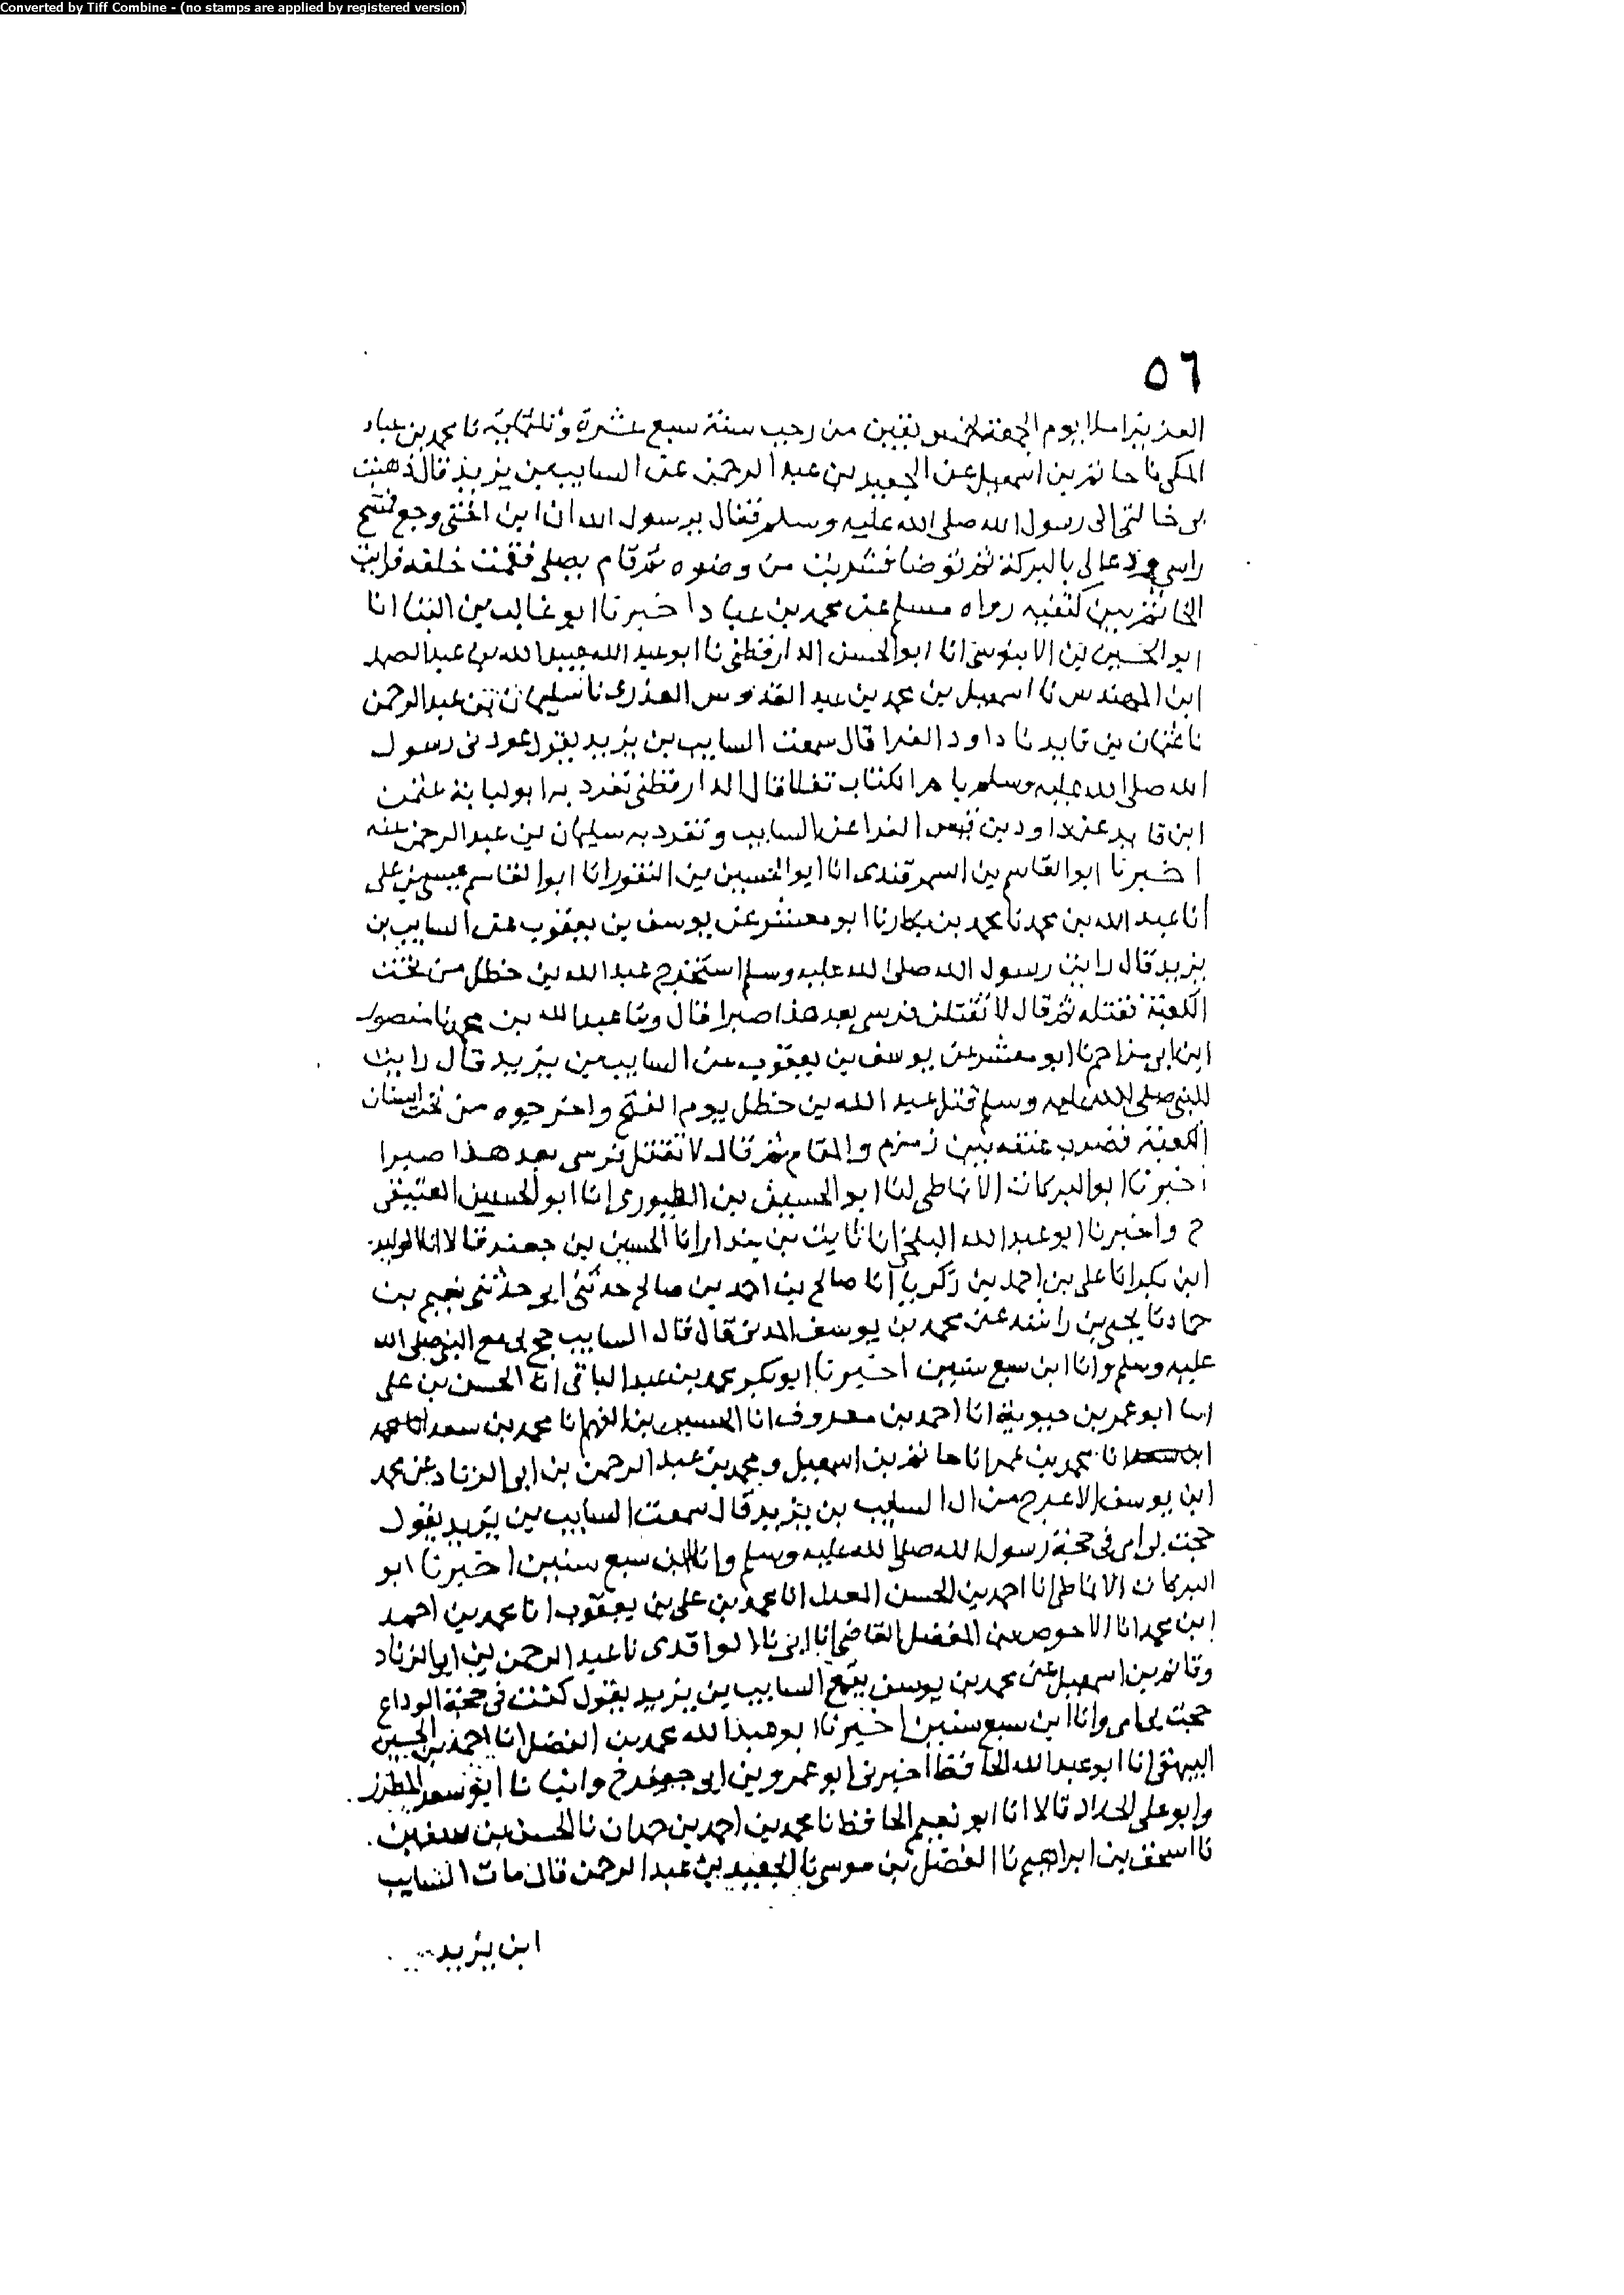 Converted by Tiff Combine - (no stamps are applied by registered version)
٥٦
العزيز املا يوم الجمعة لخمس بقين من رجب سنة سبع عشرة وثلثماية نا محمد بن عباد
المكي نا حاتم بن اسمعيل عن الجعيد بن عبد الرحمن عن السايب بن يزيد قال ذهبت
بي خالتي الى رسول الله صلى الله عليه وسلم فقال يرسول الله ان ابن اختي وجع فمسح
راسي ودعا لي بالبركة ثم توضا فشربت من وضوه ثم قام يصلي فقمت خلفه فرايت
الخاتم بين كتفيه رواه مسلم عن محمد بن عباد اخبرنا ابو غالب بن البنا انا
ابو الحسين بن الابنوسي انا ابو الحسن الدارقطني نا ابو عبد الله عبيد الله بن عبد الصمد
ابن المهندس نا اسمعيل بن محمد بن عبد القدوس العذري نا سليمان بن عبد الرحمن
نا عثمان بن فايد نا داود الفرا قال سمعت السايب بن يزيد يقول عودني رسول
الله صلى الله عليه وسلم بام الكتاب تفلا قال الدارقطني تفرد به ابو لبابة عثمن
ابن فايد عن داود بن قيس الفرا عن السايب وتفرد به سليمان بن عبد الرحمن عنه
اخبرنا ابو القاسم بن السمرقندي انا ابو الحسين بن النقور انا ابو القاسم عيسى بن علي
انا عبد الله بن محمد نا محمد بن بكار نا ابو معشر عن يوسف بن يعقوب عن السايب بن
يزيد قال رايت رسول الله صلى الله عليه وسلم استخرج عبد الله بن خطل من تحت
الكعبة فقتله ثم قال لا تقتلن قريس بعد هذا صبرا قال ونا عبد الله بن محمد نا منصور
ابن ابي مزاحم نا ابو معشر عن يوسف بن يعقوب عن السايب بن يزيد قال رايت
النبي صلى الله عليه وسلم قتل عبد الله بن خطل يوم الفتح واخرجوه من تحت استار
الكعبة فضرب عنقه بين زمزم والمقام ثم قال لا تقتل قرسي بعد هذا صبرا
اخبرنا ابو البركات الانماطي انا ابو الحسين بن الطيوري انا ابو الحسين العتيقي
ح واخبرنا ابو عبد الله البلخي انا ثابت بن بندار انا الحسين بن جعفر قالا انا الوليد
ابن بكر انا علي بن احمد بن زكريا انا صالح بن احمد بن صالح حدثني ابي حدثني نعيم بن
حماد نا يحيى بن راشد عن محمد بن يوسف المدني قال قال السايب حج بي مع النبي صلى الله
عليه وسلم وانا ابن سبع سنين اخبرنا ابو بكر محمد بن عبد الباقي انا الحسن بن علي
انا ابو عمر بن حيوية انا احمد بن معروف انا الحسين بن الفهم نا محمد بن سعد انا محمد
ابن سعد انا محمد بن عمر نا حاتم بن اسمعيل ومحمد بن عبد الرحمن بن ابي الزناد عن محمد
ابن يوسف الاعرج من ال السايب بن يزيد قال سمعت السايب بن يزيد يقول
حجت بي امي في حجة رسول الله صلى الله عليه وسلم وانا ابن سبع سنين اخبرنا ابو
البركات الانماطي انا احمد بن الحسن المعدل انا محمد بن علي بن يعقوب انا محمد بن احمد
ابن محمد انا الاحوص بن المفضل القاضي نا ابي نا الواقدي نا عبد الرحمن بن ابي الزناد
وحاتم بن اسمعيل عن محمد بن يوسف سمع السايب بن يزيد يقول كنت في حجة الوداع
حجت بي امي وانا ابن سبع سنين اخبرنا ابو عبد الله محمد بن الفضل انا احمد بن الحسين
البيهقي انا ابو عبد الله الحافظ اخبرني ابو عمرو بن ابي جعفر ح وانبانا ابو سعد المطرز
وابو علي الحداد قالا انا ابو نعيم الحافظ نا محمد بن احمد بن حمدان نا الحسن بن سفين
نا اسحق بن ابراهيم نا الفضل بن موسى نا الجعيد بن عبد الرحمن قال مات السايب
ابن يزيد